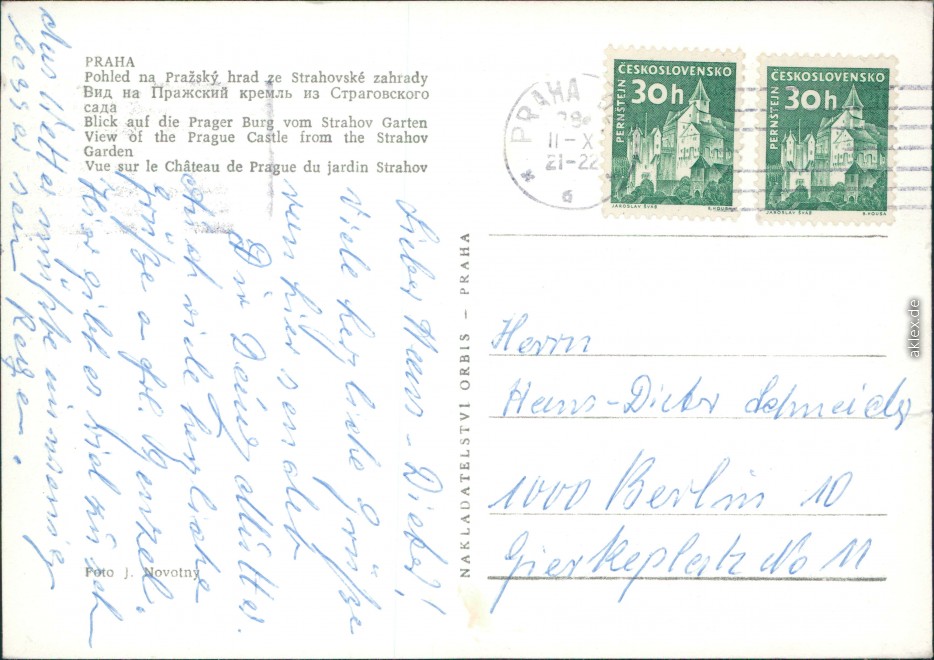 PRAHA
Pohled na Pražský hrad ze Strahovské zahrady
Вид на Пражский кремль из Страговского
сада
Blick auf die Prager Burg vom Strahov Garten
View of the Prague Castle from the Strahov
Garden
Vue sur le Château de Prague du jardin Strahov
Lieber Hans-Dieter!
Viele herzliche Grüße
von hier sendet
Dir Deine Mutter.
Auch viele herzliche
Grüße a. Frl.
Hier gibt es viel zu sehen
das Wetter müßte ein wenig
besser sein Regen.
Foto J. Novotný
NAKLADATELSTVÍ ORBIS – PRAHA
PRAHA
11-X
21-22
6
ČESKOSLOVENSKO
30h
PERNŠTEJN
JAROSLAV ŠVÁB
B. HOUSA
ČESKOSLOVENSKO
30h
PERNŠTEJN
JAROSLAV ŠVÁB
B. HOUSA
Herrn
Hans-Dieter Schneider
1000 Berlin 10
Gierkeplatz No 11
aklex.de